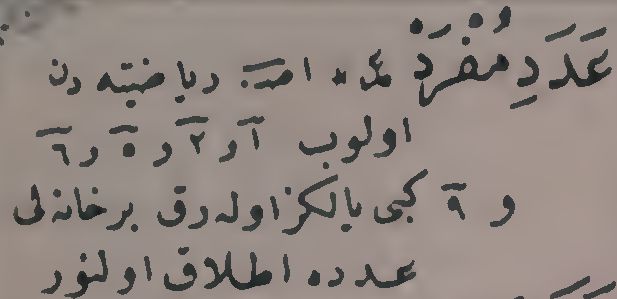 عَدَدِ مُفْرَدْ عد اصـ. رياضيته دن
اولوب ١ و ٢ و ٥ و ٦
و ٩ كبى يالكز اوله رق برخانه لى
عدده اطلاق اولنور